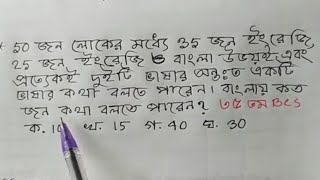 * 50 জন লোকের মধ্যে 35 জন ইংরেজি
25 জন ইংরেজি ও বাংলা উভয়ই এবং
প্রত্যেকই দুইটি ভাষার অন্তত একটি
ভাষার কথা বলতে পারেন। বাংলায় কত
জন কথা বলতে পারেন? ৩৫ তম BCS
ক. 10 খ. 15 গ. 40 ঘ. 30